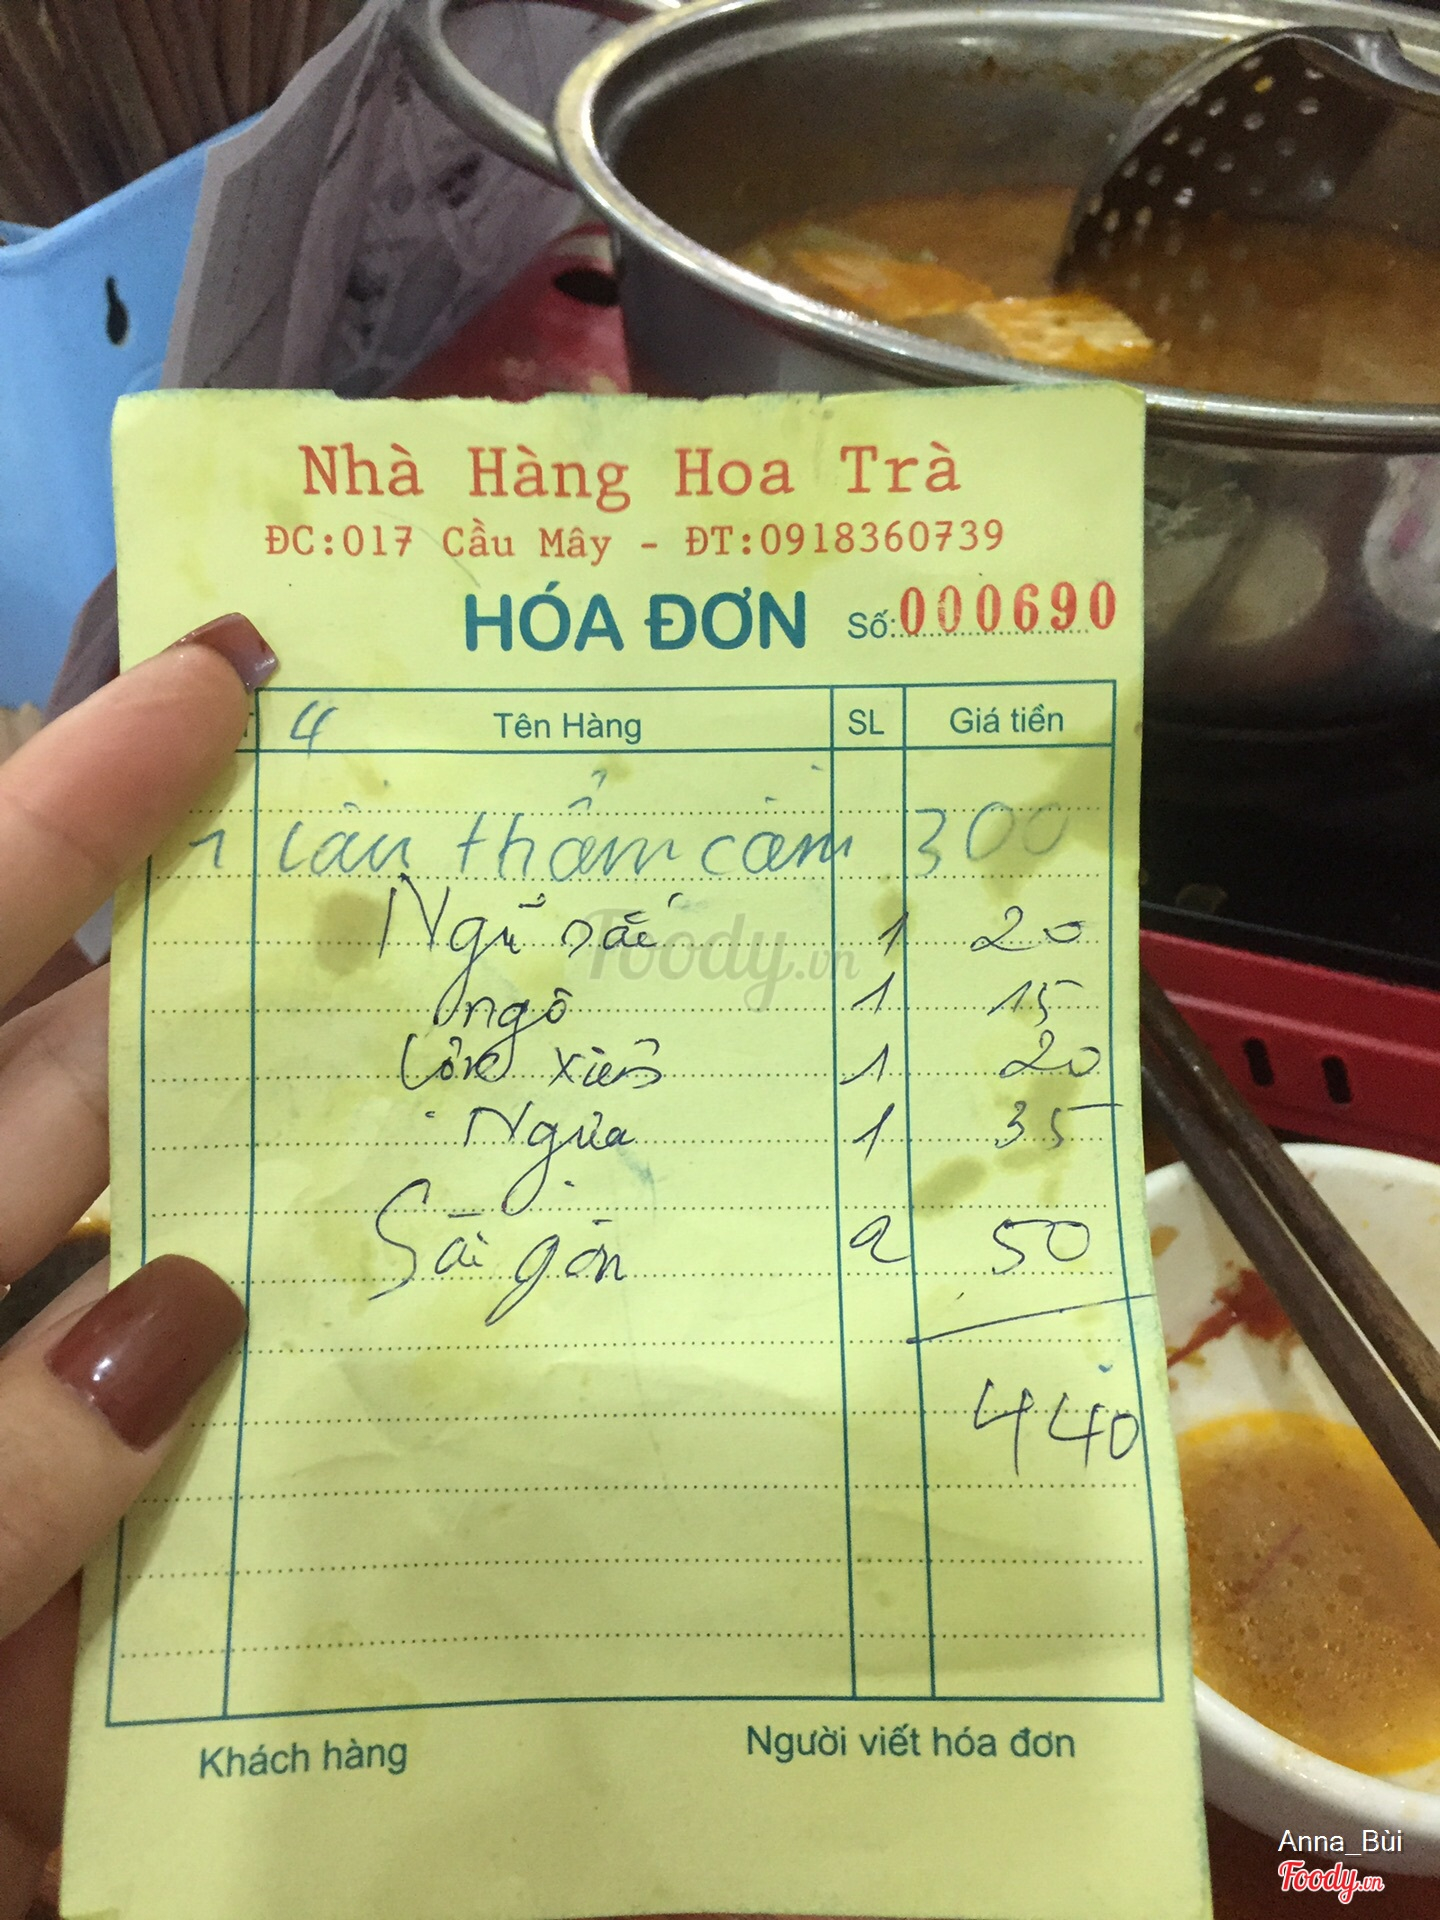 Nhà Hàng Hoa Trà
ĐC:017 Cầu Mây - ĐT:0918360739
HÓA ĐƠN Số: 000690
4 Tên Hàng SL Giá tiền
1 Lẩu thẩm cẩm 300
Ngũ sắc 1 20
ngô 1 15
Lợn xiên 1 20
Ngựa 1 35
Sài gòn 2 50
440
Khách hàng Người viết hóa đơn
Foody.vn
Anna_Bùi
Foody.vn